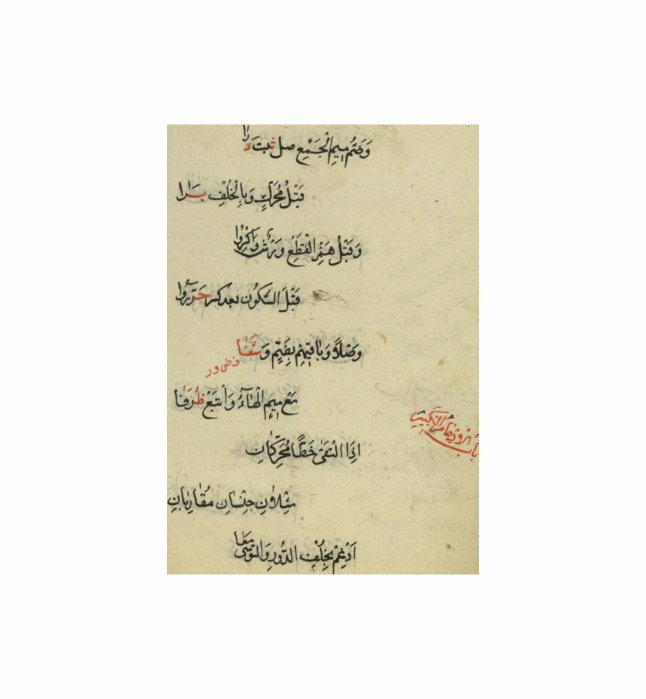 وَضَمُّ مِيمِ الْجَمْعِ صل ثبتَ درا
قَبْلَ مُحَرَّكٍ وَبِالْخُلْفِ بَرَا
وَقَبْلَ هَمْزِ الْقَطْعِ وَرْشٌ وَاكْسِرُوا
قَبْلَ السُّكُونِ بعد كسر حَرَّرُوا
وَصْلاً وَبَاقِيهِمْ بِضَمٍّ وَشَفَا
مَعْ مِيمٍ الْهَاءُ وَأَتْبِعْ ظُرَفَا
باب الكبير
إِذَا الْتَقَى خَطًّا مُحَرَّكَانِ
مِثْلَانِ جِنْسَانِ مُقَارِبَانِ
أَدْغِمْ بِخُلْفِ الدُّورِ وَالسُّوسِي مَعَا